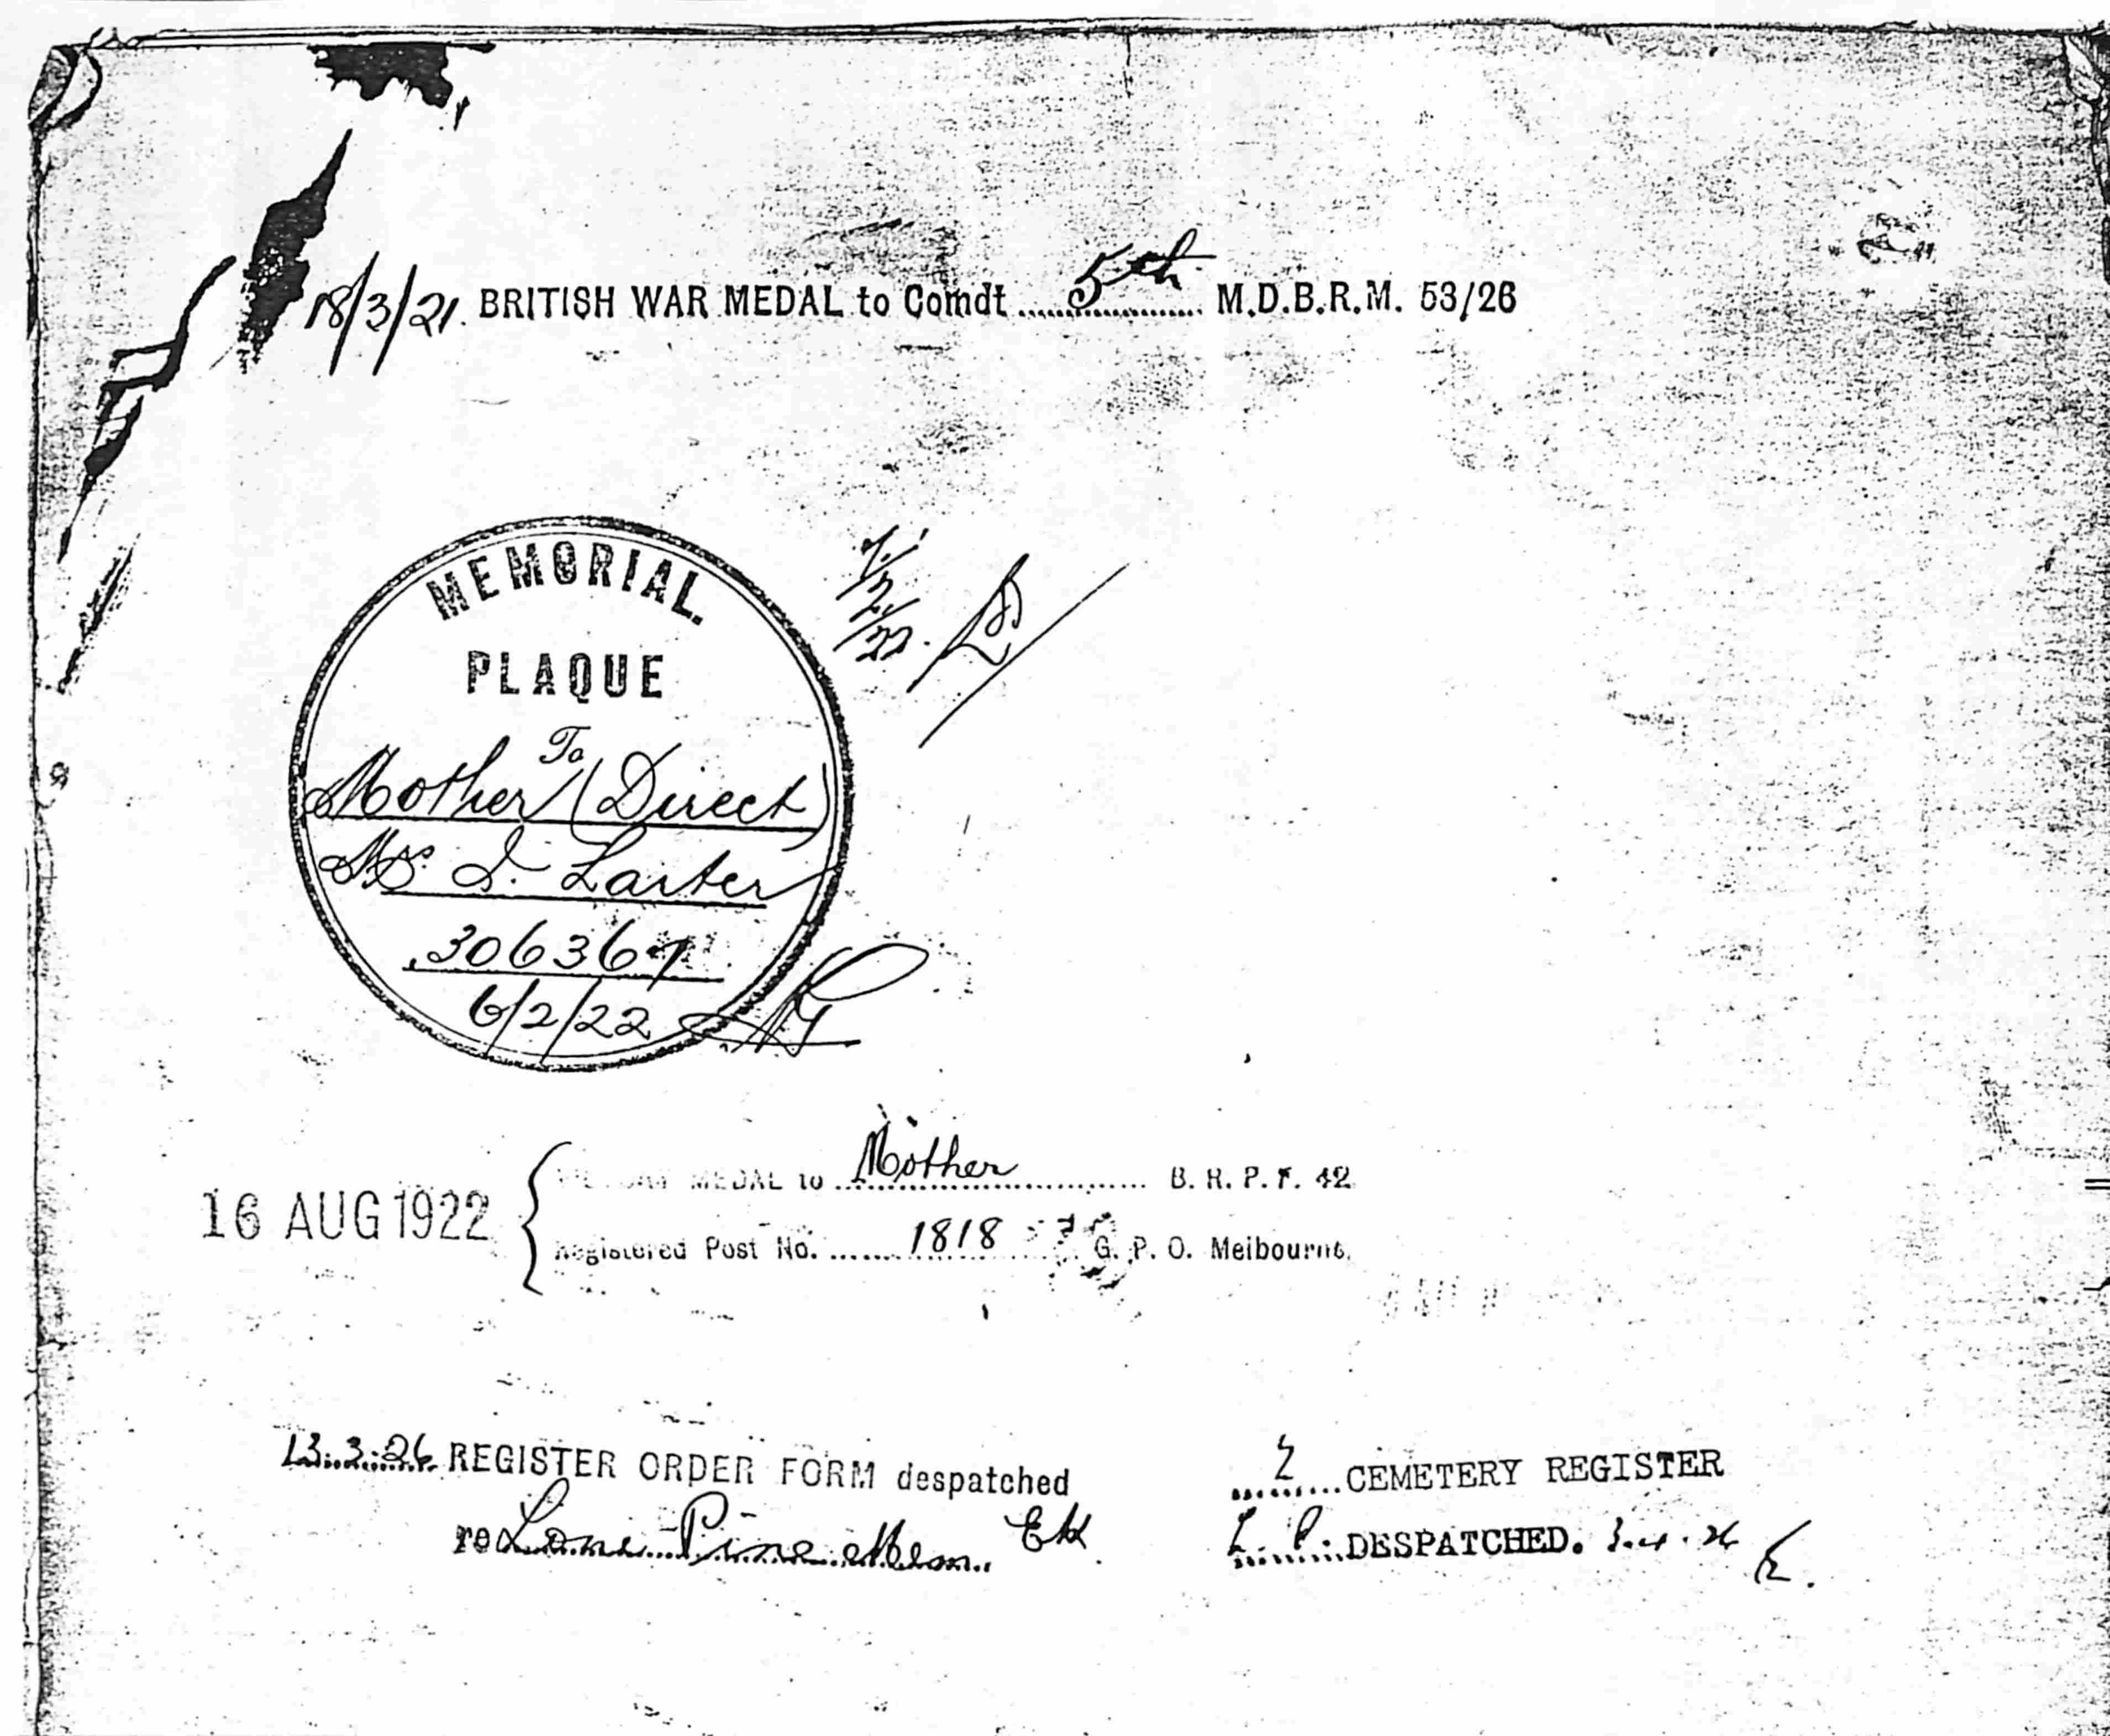 18/3/21. BRITISH WAR MEDAL to Comdt 5th M.D.B.R.M. 53/26
MEMORIAL.
PLAQUE
To
Mother (Direct)
Mrs. I. Larter
306367
6/2/22
7/7/22.
16 AUG 1922
MEDAL to Mother B. R. P. F. 42
Registered Post No. 1818 G. P. O. Melbourne.
13.3.26 REGISTER ORDER FORM despatched
re Lone Pine Mem.
2 CEMETERY REGISTER
L. P. DESPATCHED. 3.4.26